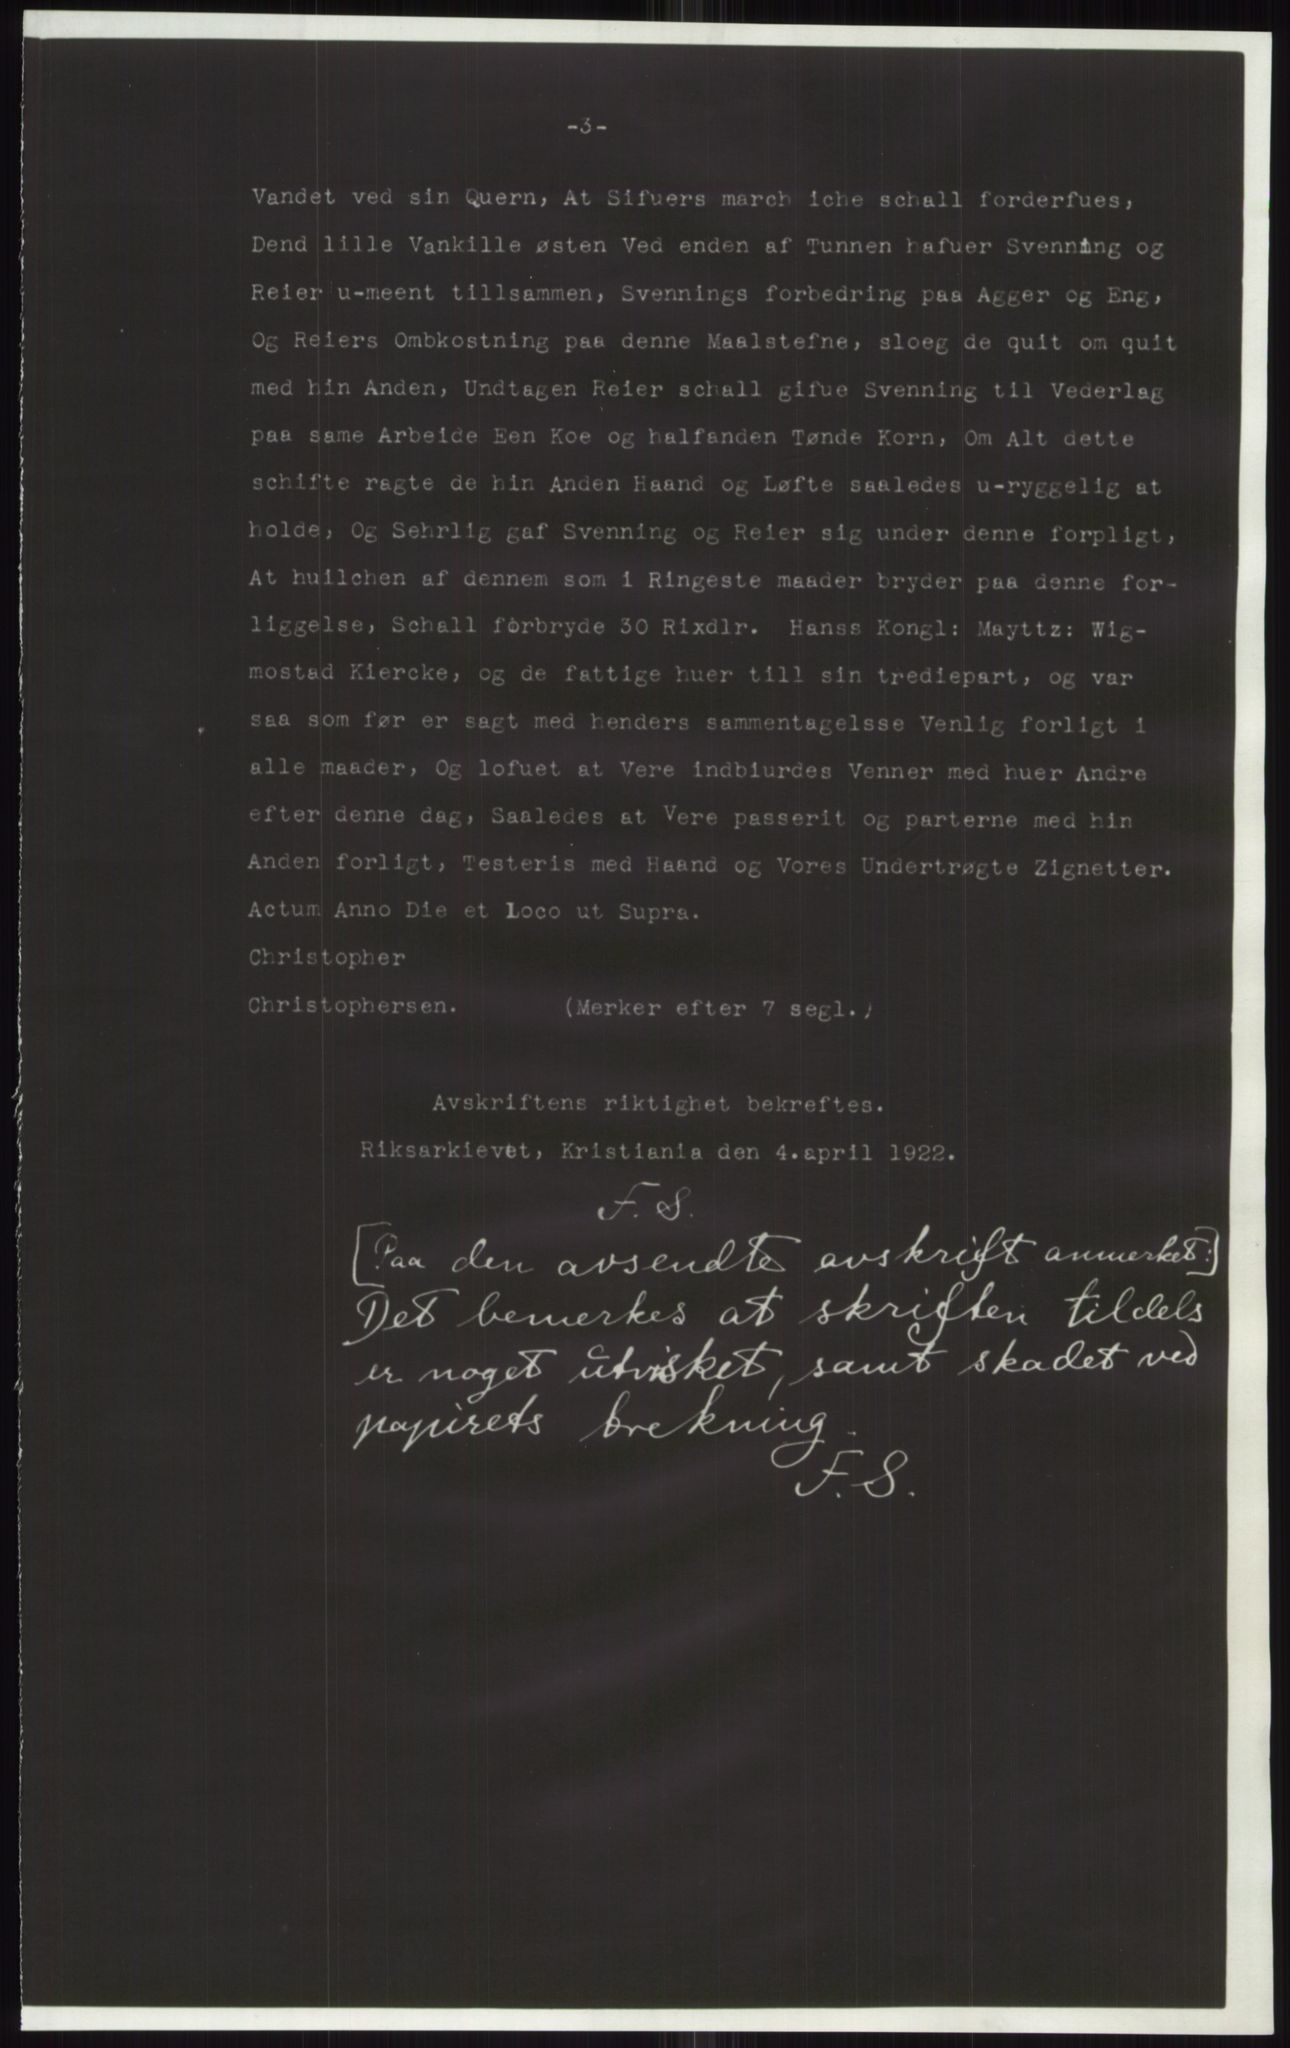 -3-
Vandet ved sin Quern, At Sifuers march iche schall forderfues,
Dend lille Vankille østen Ved enden af Tunnen hafuer Svenning og
Reier u-meent tillsammen, Svennings forbedring paa Agger og Eng,
Og Reiers Ombkostning paa denne Maalstefne, sloeg de quit om quit
med hin Anden, Undtagen Reier schall gifue Svenning til Vederlag
paa same Arbeide Een Koe og halfanden Tønde Korn, Om Alt dette
schifte ragte de hin Anden Haand og Løfte saaledes u-ryggelig at
holde, Og Sehrlig gaf Svenning og Reier sig under denne forpligt,
At huilchen af dennem som i Ringeste maader bryder paa denne for-
liggelse, Schall forbryde 30 Rixdlr. Hanss Kongl: Mayttz: Wig-
mostad Kiercke, og de fattige huer till sin trediepart, og var
saa som før er sagt med henders sammentagelsse Venlig forligt i
alle maader, Og lofuet at Vere indbiurdes Venner med huer Andre
efter denne dag, Saaledes at Vere passerit og parterne med hin
Anden forligt, Testeris med Haand og Vores Undertrøgte Zignetter.
Actum Anno Die et Loco ut Supra.
Christopher
Christophersen. (Merker efter 7 segl.)
Avskriftens riktighet bekreftes.
Riksarkievet, Kristiania den 4.april 1922.
F. S.
[Paa den avsendte avskrift anmerket:]
Det bemerkes at skriften tildels
er noget utvisket, samt skadet ved
papirets brekning.
F. S.